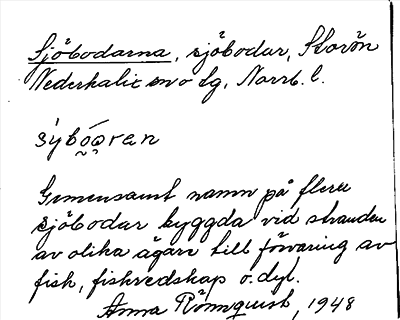 Sjöbodarna, sjöbodar, Storön
Nederkalix sn o tg, Norrb. l.
Gemensamt namn på flera
sjöbodar byggda vid stranden
av olika ägare till förvaring av
fisk, fiskredskap o. dyl.
Anna Rönnquist, 1948